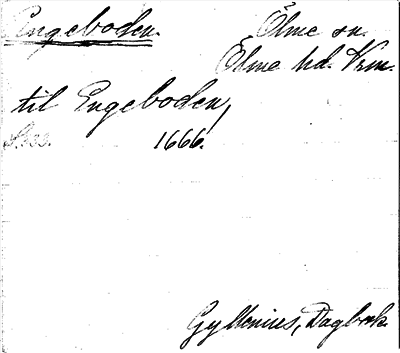 Engeboden. Ölme sn.
Ölme hd. Vrm.
til Engeboden,
1666.
Gyllenius, Dagbok.